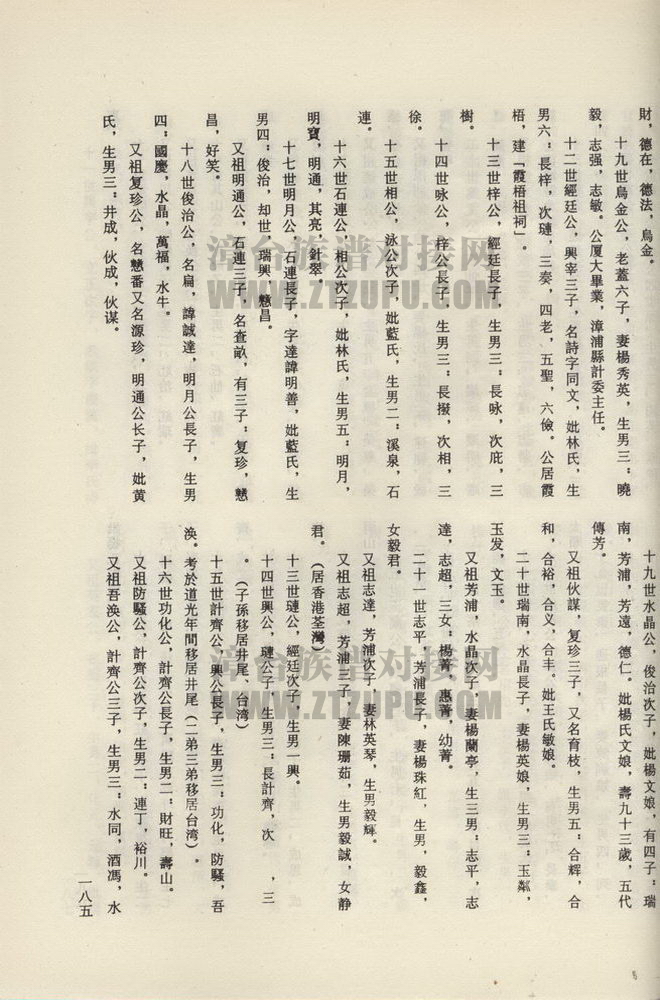 財，德在，德法，烏金。
十九世烏金公，老蓋六子，妻楊秀英，生男三：曉
毅，志强，志敏。公厦大畢業，漳浦縣計委主任。
十二世經廷公，興宰三子，名詩字同文，妣林氏，生
男六：長梓，次璉，三奏，四老，五聖，六儉。公居霞
梧，建「霞梧祖祠」。
十三世梓公，經廷長子，生男三：長咏，次庇，三
樹。
十四世咏公，梓公長子，生男三：長掇，次相，三
徐。
十五世相公，泳公次子，妣藍氏，生男二：溪泉，石
連。
十六世石連公，相公次子，妣林氏，生男五：明月，
明寶，明通，其亮，針翠。
十七世明月公，石連長子，字達諱明善，妣藍氏，生
男四：俊治，却世，瑞興，戆昌。
又祖明通公，石連三子，名查畝，有三子：复珍，戆
昌，好笑。
十八世俊治公，名扁，諱誠達，明月公長子，生男
四：國慶，水晶，萬福，水牛。
又祖复珍公，名戆番又名源珍，明通公长子，妣黄
氏，生男三：井成，伙成，伙谋。
十九世水晶公，俊治次子，妣楊文娘，有四子：瑞
南，芳浦，芳遠，德仁。妣楊氏文娘，壽九十三歲，五代
傳芳。
又祖伙謀，复珍三子，又名育枝，生男五：合輝，合
和，合裕，合义，合丰。妣王氏敏娘。
二十世瑞南，水晶長子，妻楊英娘，生男三：玉粼，
玉发，文玉。
又祖芳浦，水晶次子，妻楊蘭亭，生三男：志平，志
達，志超，三女：楊菁，惠菁，幼菁。
二十一世志平，芳浦長子，妻楊珠紅，生男，毅鑫，
女毅君。
又祖志達，芳浦次子，妻林英琴，生男毅輝。
又祖志超，芳浦三子，妻陳珊茹，生男毅誠，女静
君。（居香港荃灣）
十三世璉公，經廷次子，生男一興。
十四世興公，璉公子，生男三：長計齊，次　，三
。（子孫移居井尾、台湾）
十五世計齊公，興公長子，生男三：功化，防騷，吾
渙。考於道光年間移居井尾（二弟三弟移居台湾）。
十六世功化公，計齊公長子，生男二：財旺，壽山。
又祖防騷公，計齊公次子，生男二：連丁，裕川。
又祖吾渙公，計齊公三子，生男三：水同，酒馮，水
一八五
漳台族谱对接网
WWW.ZTZUPU.COM
漳台族谱对接网
WWW.ZTZUPU.COM